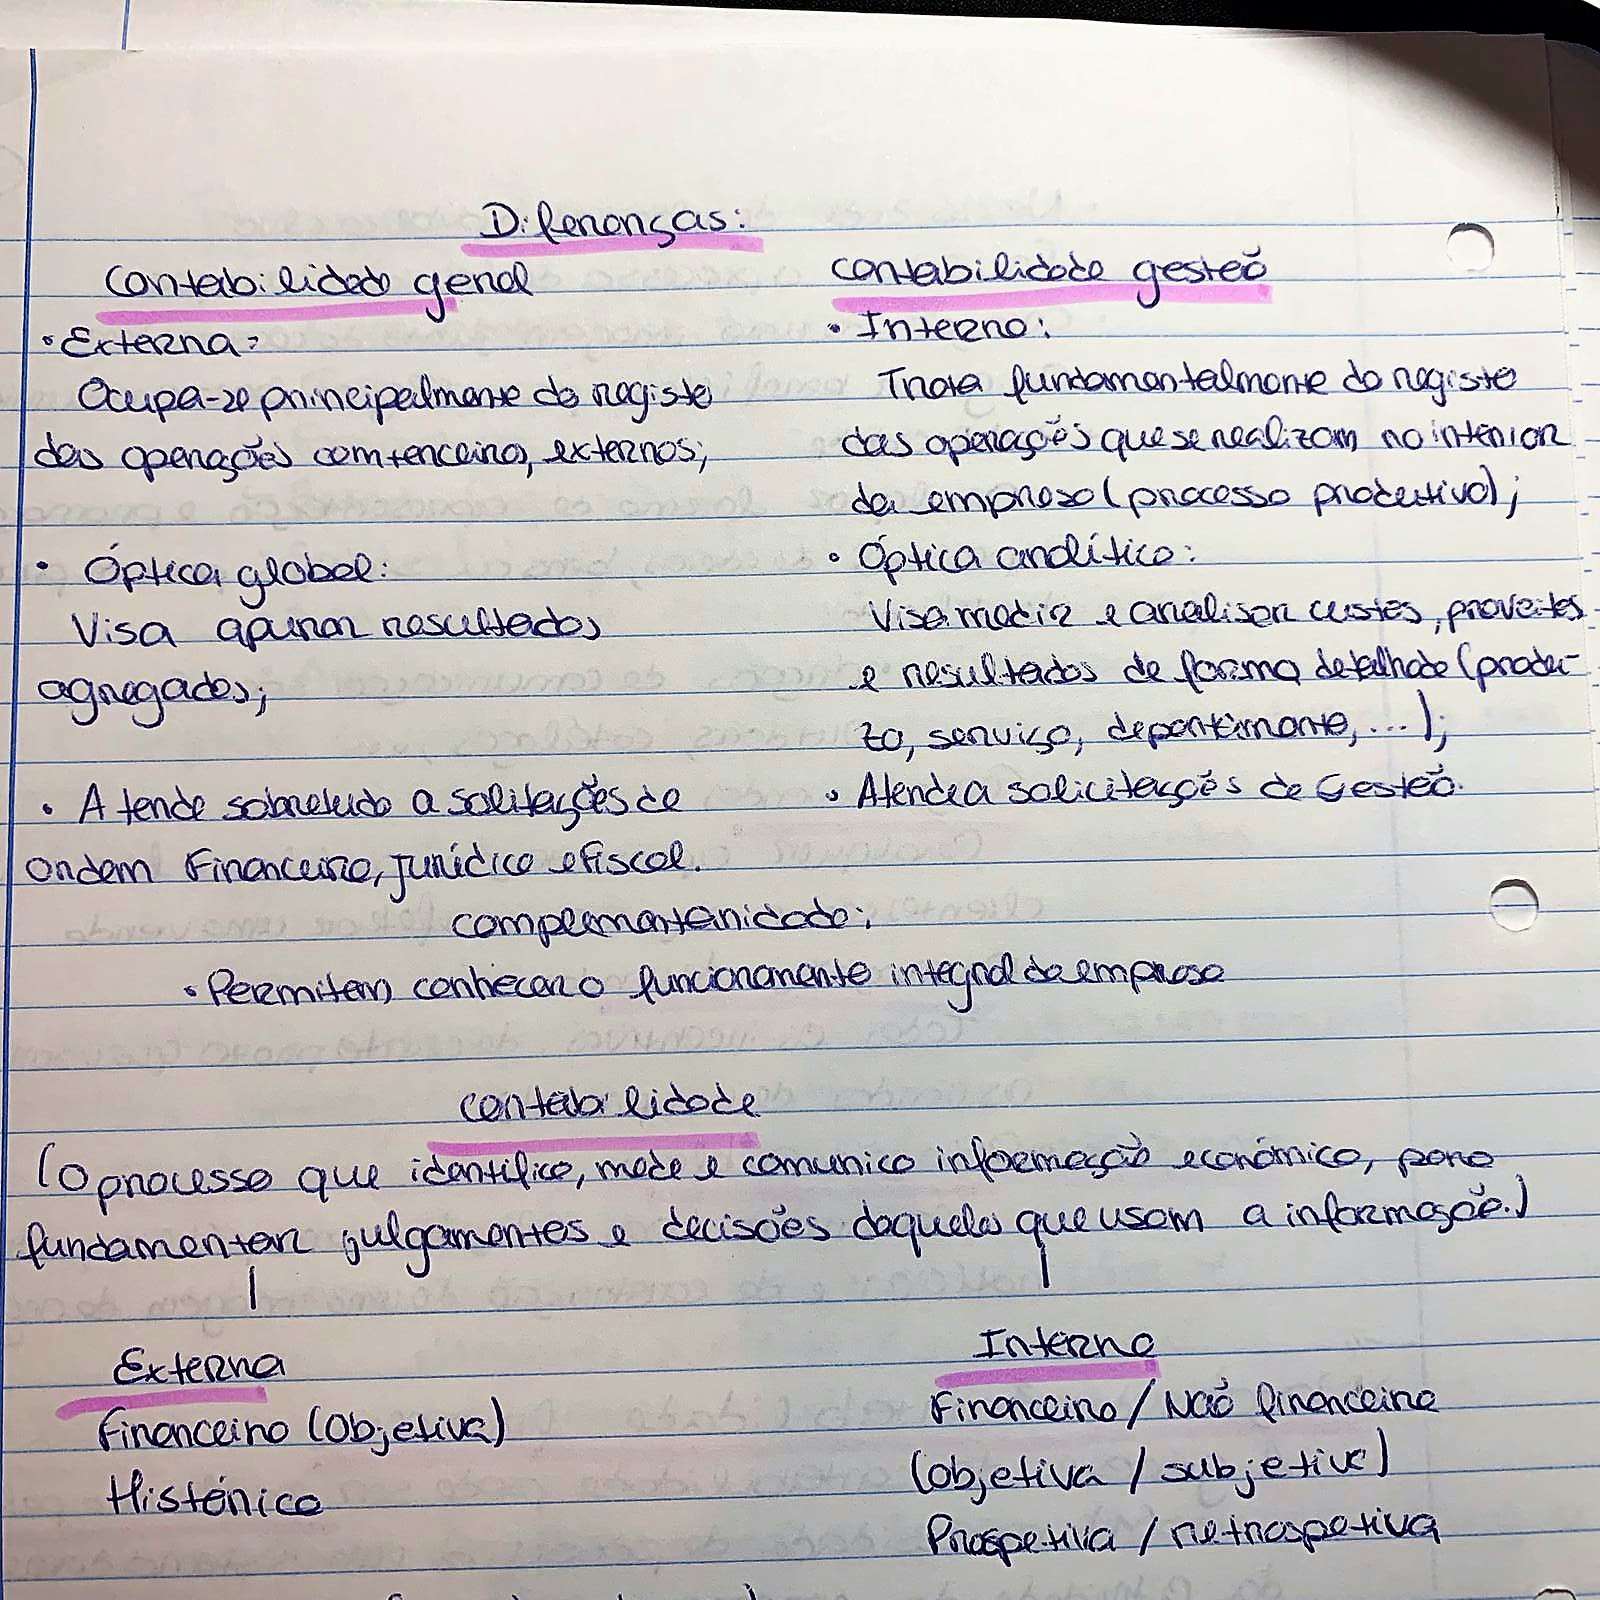 Diferenças:
Contabilidade geral
• Externa:
Ocupa-se principalmente do registo
das operações com terceiros, externos;
• Óptica global:
Visa apurar resultados
agregados;
• Atende sobretudo a solitações de
ordem Financeira, jurídica e fiscal.
Contabilidade gestão
• Interna:
Trata fundamentalmente do registo
das operações que se realizam no interior
da empresa (processo produtivo);
• Óptica analítica:
Visa medir e analisar custos, proveitos
e resultados de forma detalhada (produ-
to, serviço, departamento, ...);
• Atende a solicitações de Gestão.
Complementaridade:
• Permitem conhecer o funcionamento integral da empresa
Contabilidade
(O processo que identifica, mede e comunica informação económica, para
fundamentar julgamentos e decisões daqueles que usam a informação.)
Externa
Financeira (Objetiva)
Histórica
Interna
Financeira / Não financeira
(objetiva / subjetiva)
Prospetiva / retrospetiva